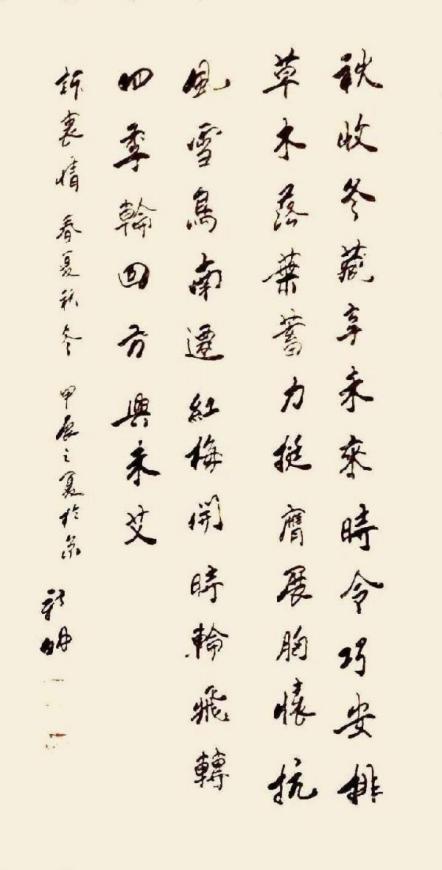 秋收冬藏享未來時令巧安排
草木落葉蓄力挺膺展胸懷抗
風雪鳥南遷紅梅開時輪飛轉
四季輪回方興未艾
訴衷情 春夏秋冬 甲辰之夏於京
明